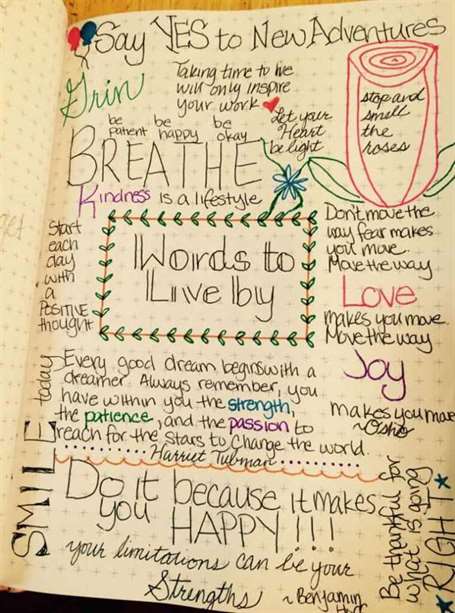 Say YES to New Adventures
Grin
Taking time to live
will only inspire
your work
be patient
be happy
be okay
Let your
Heart
be light
stop and
smell
the
roses
BREATHE
Kindness is a lifestyle
Start
each
day
with
a
POSITIVE
thought
Words to
Live by
Don't move the
way fear makes
you move.
Move the way
Love
makes you move.
Move the way
Joy
makes you move
~Osho
SMILE today
Every good dream begins with a
dreamer. Always remember, you
have within you the strength,
the patience, and the passion to
reach for the stars to change the world.
Harriet Tubman
Do it because it makes
you HAPPY!!!
your limitations can be your
Strengths
~Benjamin
Be thankful for
what is going
RIGHT